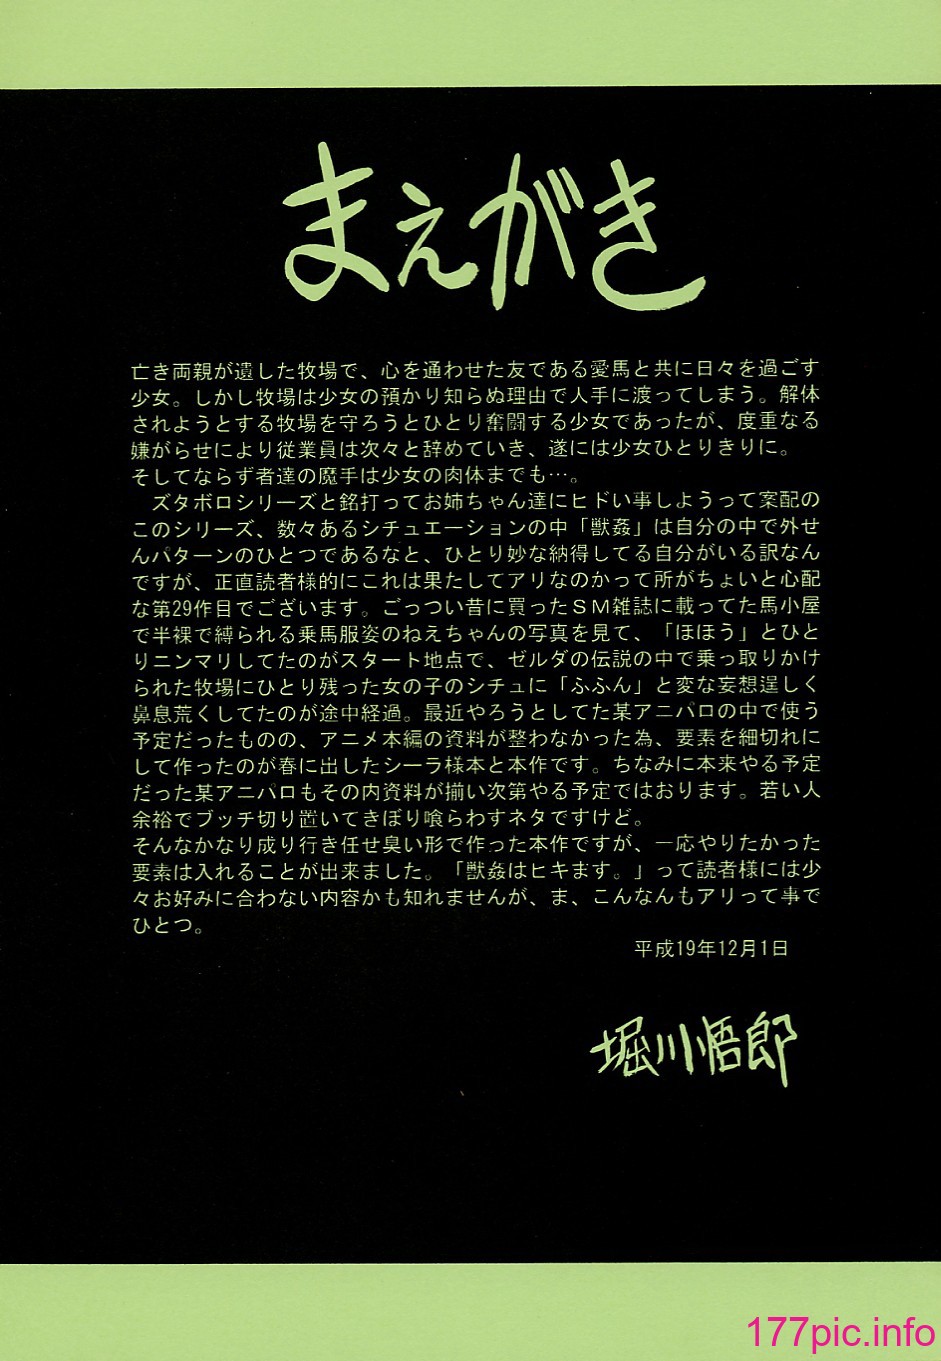 まえがき
亡き両親が遺した牧場で、心を通わせた友である愛馬と共に日々を過ごす
少女。しかし牧場は少女の預かり知らぬ理由で人手に渡ってしまう。解体
されようとする牧場を守ろうとひとり奮闘する少女であったが、度重なる
嫌がらせにより従業員は次々と辞めていき、遂には少女ひとりきりに。
そしてならず者達の魔手は少女の肉体までも…。
　ズタボロシリーズと銘打ってお姉ちゃん達にヒドい事しようって案配の
このシリーズ、数々あるシチュエーションの中「獣姦」は自分の中で外せ
んパターンのひとつであるなと、ひとり妙な納得してる自分がいる訳なん
ですが、正直読者様的にこれは果たしてアリなのかって所がちょいと心配
な第29作目でございます。ごっつい昔に買ったＳＭ雑誌に載ってた馬小屋
で半裸で縛られる乗馬服姿のねえちゃんの写真を見て、「ほほう」とひと
りニンマリしてたのがスタート地点で、ゼルダの伝説の中で乗っ取りかけ
られた牧場にひとり残った女の子のシチュに「ふふん」と変な妄想逞しく
鼻息荒くしてたのが途中経過。最近やろうとしてた某アニパロの中で使う
予定だったものの、アニメ本編の資料が整わなかった為、要素を細切れに
して作ったのが春に出したシーラ様本と本作です。ちなみに本来やる予定
だった某アニパロもその内資料が揃い次第やる予定ではおります。若い人
余裕でブッチ切り置いてきぼり喰らわすネタですけど。
そんなかなり成り行き任せ臭い形で作った本作ですが、一応やりたかった
要素は入れることが出来ました。「獣姦はヒキます。」って読者様には少
々お好みに合わない内容かも知れませんが、ま、こんなんもアリって事で
ひとつ。
平成19年12月1日
堀川悟郎
177pic.info